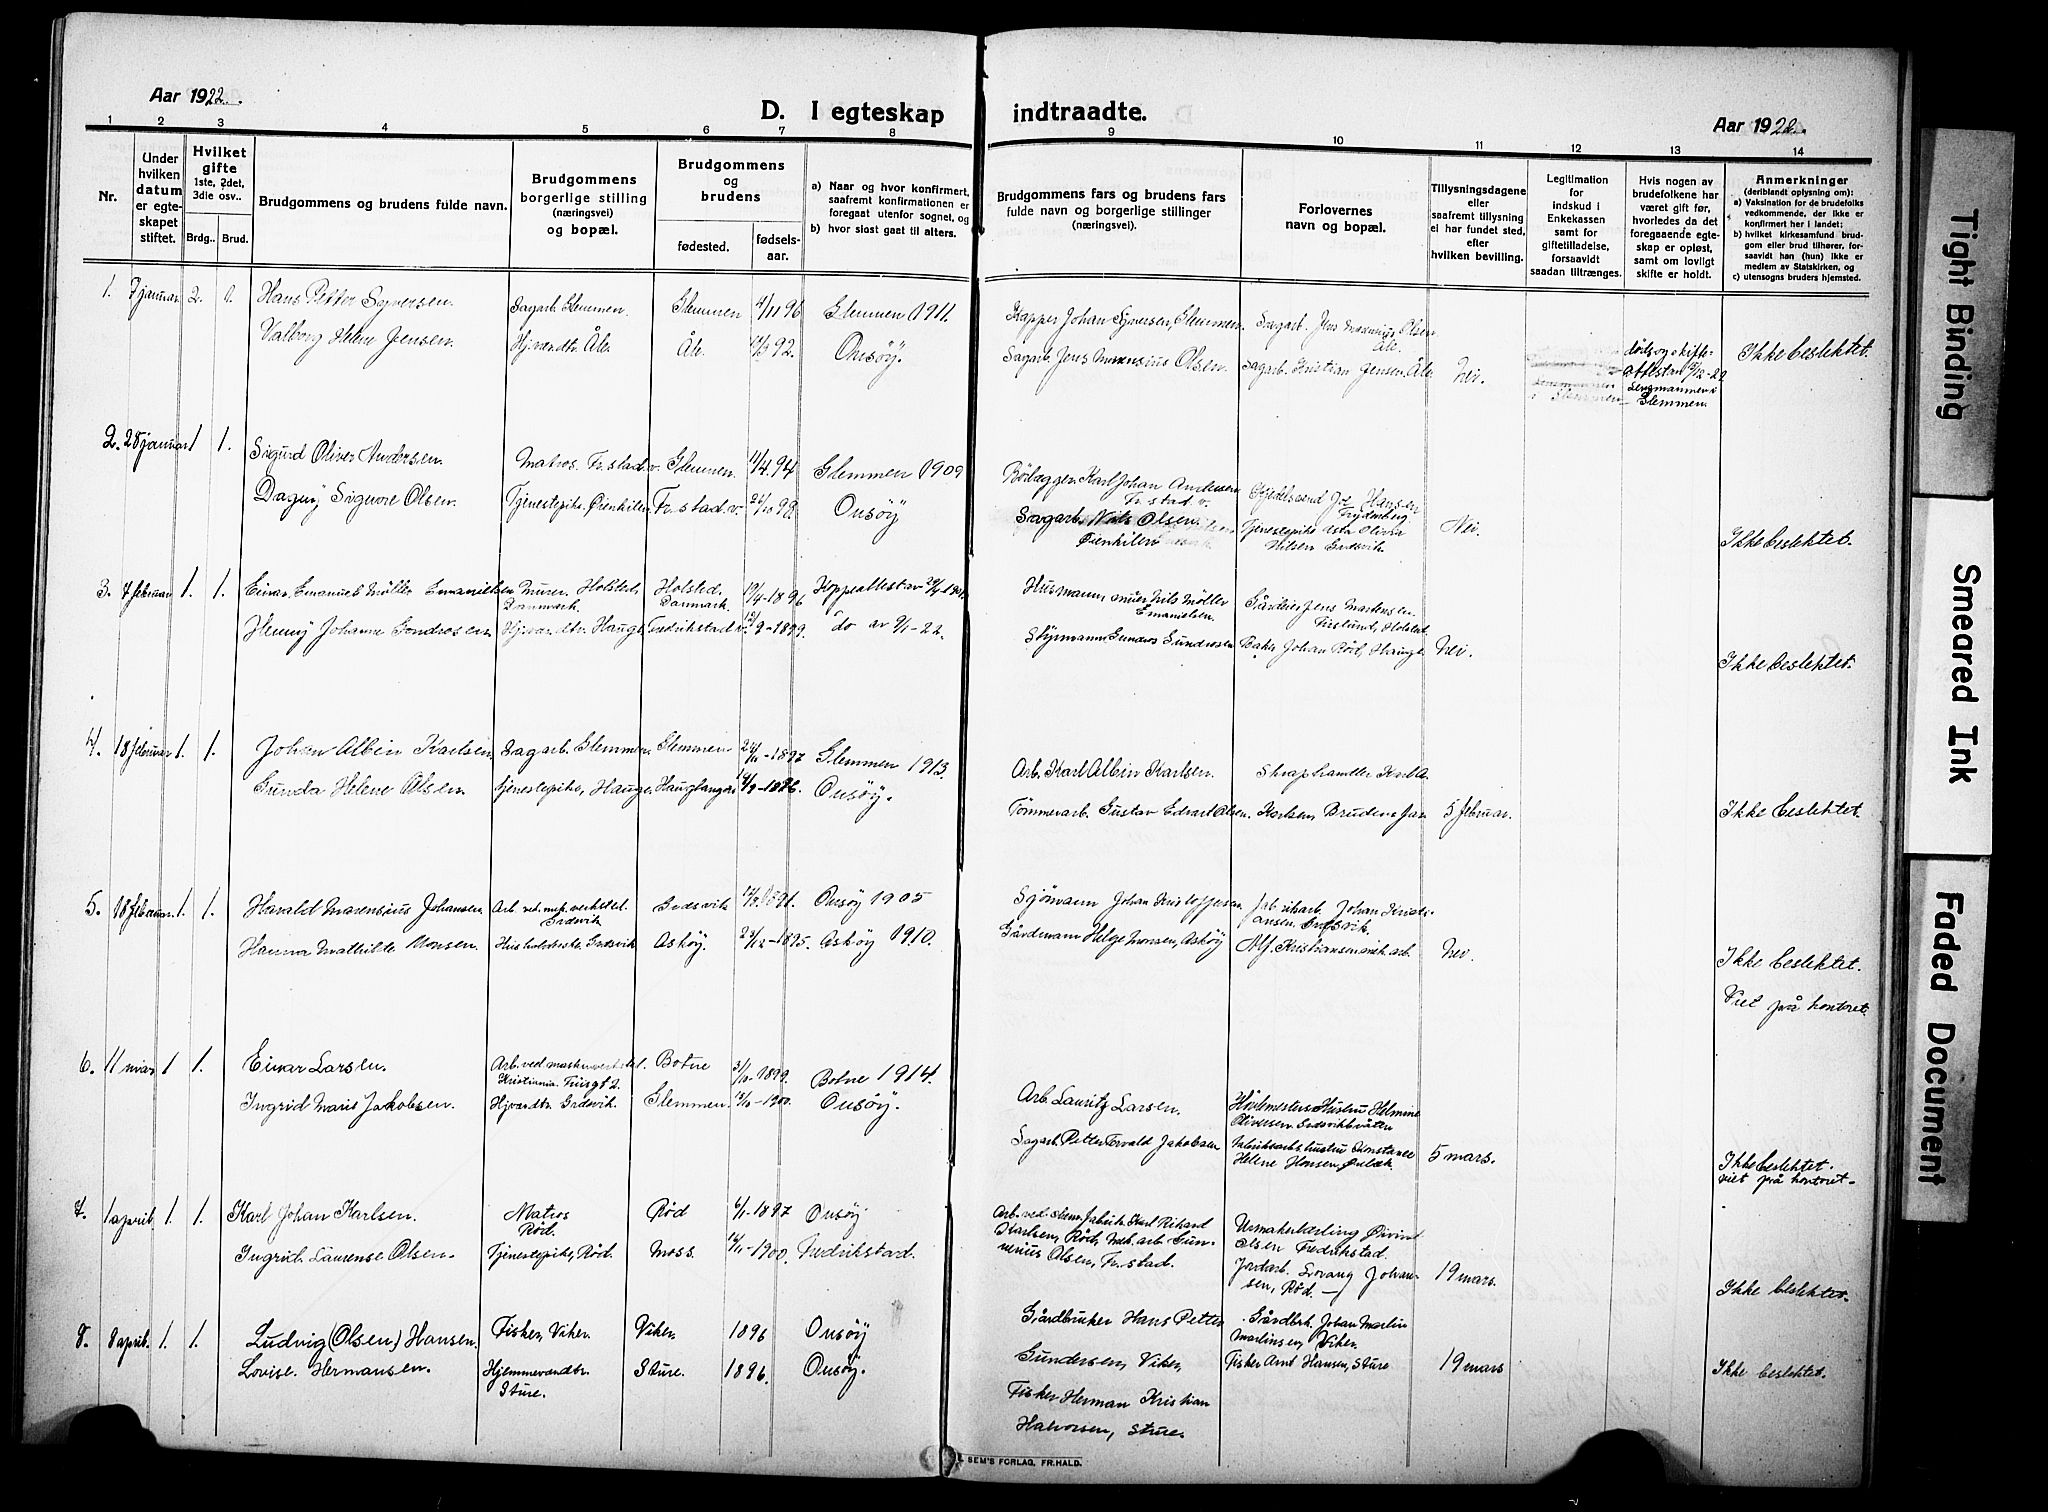 Aar 1922.
D. I egteskap indtraadte.
Aar 1922.
1 2 3 4 5 6 7 8 9 10 11 12 13 14
Nr.
Under hvilken datum er egte-skapet stiftet.
Hvilket gifte
1ste, 2det, 3die osv..
Brdg.. Brud.
Brudgommens og brudens fulde navn.
Brudgommens borgerlige stilling (næringsvei) og bopæl.
Brudgommens og brudens
fødested.
fødsels-aar.
a) Naar og hvor konfirmert, saafremt konfirmationen er foregaat utenfor sognet, og
b) hvor sidst gaat til alters.
Brudgommens fars og brudens fars fulde navn og borgerlige stillinger (næringsvei).
Forlovernes navn og bopæl.
Tillysningsdagene eller saafremt tillysning ei har fundet sted, efter hvilken bevilling.
Legitimation for indskud i Enkekassen samt for giftetilladelse, forsaavidt saadan tiltrænges.
Hvis nogen av brudefolkene har været gift før, hvorledes da det foregaaende egte-skap er opløst, samt om lovligt skifte er holdt.
Anmerkninger (deriblandt oplysning om):
a) Vaksination for de brudefolks vedkommende, der ikke er konfirmert her i landet;
b) hvilket kirkesamfund brud-gom eller brud tilhører, for-saavidt han (hun) ikke er medlem av Statskirken, og
c) utensogns bruders hjemsted.
1. 7 januar 2. 1. Hans Petter Syversen. Sagarb. Glemmen. Glemmen 4/11 96 Glemmen 1911. Kapper Johan Syversen, Glemmen. Sagarb. Jens Marensius Olsen Åle.
Valborg Helene Jensen. Hj.værdtr. Åle. Åle. 92. Onsöy. Sagarb. Jens Marensius Olsen. Sagarb. Kristian Jensen, Åle. Nei. døds og skifte-attest av Glemmen. Ikke beslektet.
2. 28 januar 1 1. Sigurd Oliver Andersen. Matros. Fr.stad v. Glemmen. 11/4 94 Glemmen 1909 Karl Johan Andersen Fr.stad v. Hansen
Dagny Signore Olsen. Tjenestepike, Øienkilen Fr.stad v. 26/10 99. Onsöy Sagarb. Nils Olsen Øienkilen Tjenestepike Asta Olivia Nilsen Gresvik. Nei. Ikke beslektet.
3. 7 februar 1. 1. Einar Emanuel Möller Emanielsen Murer Holsted, Danmark. Holsted Danmark. 19/4-1896 Koppeattest av Husmann, murer Nils Möller Emanielsen. Gårdeier Jens Martensen. Holsted.
Henny Johanne Gundrosen. Hj.værdtr. Hauge Fredrikstad v. 12/9-1899 do av 9/1-22. Styrmann Gundros Gundrosen Baker Johan Röd, Hauge. Nei. Ikke beslektet.
4. 18 februar 1. 1. Johan Albin Karlsen Sagarb. Glemmen. Glemmen 24/11-1897 Glemmen 1913. Arb. Karl Albin Karlsen. Skraphandler Karl A.
Gunda Helene Olsen. tjenestepike, Hauge. -1896. Onsöy. Tömmerarb. Gustav Edvart Olsen. Karlsen, Brudens far 5 februar. Ikke beslektet.
5. 18 februar. 1. 1. Harald Marensius Johansen. Arb. ved mek. verksted. Gresvik Gresvik 1891. Onsöy 1905 Sjömann Johan Kristoffersen Johan Kristi-ansen, Gresvik.
Hanna Mathilde Monsen. Gresvik Asköy. 23/12-1895. Asköy 1910. Gårdmann Helge Monsen, Asköy Alf. Kristiansen mek. arb. Nei. Ikke beslektet.
Viet på kontoret.
6. 11 mars 1 1. Einar Larsen. Arb. ved maskinverksted. Kristiania 2. Botne 3/10-1899. Botne 1914. Arb. Lauritz Larsen. Hövlemesters Hustru Helmine Oliversen Gresvik
Ingrid Marie Jakobsen. Hjværdtr. Gresvik. Glemmen 12/10-1900. Onsöy. Sagarb. Petter Torvald Jakobsen hustru Konstance Helene Hansen, 5 mars. Ikke beslektet. viet på kontoret.
7. 1 april. 1. 1. Karl Johan Karlsen. Matros Röd. Röd 6/1-1897 Onsöy Arb. ved stenv. fabrik Karl Rikard Karlsen, Röd, Mek. arb. Gun-nerius Olsen, Fr.stad. Urmakerlærling Öivind Olsen Fredrikstad.
Ingrid Laurense Olsen. Tjenestepike, Röd. Moss. -1900. Fredrikstad. Jordarb. Lorang Johan-sen, Röd. 19 mars. Ikke beslektet.
8. 8 april. 1. 1. Ludvig (Olsen) Hansen. Fisker, Viker. Viker 1896 Onsöy Gårdbruker Hans Petter Gundersen, Viker, Gårdbr. Johan Martin Martinsen, Viker.
Lovise Hermansen. Hjemmeværdtr. Sture. Sture. 1896. Onsöy. Fisker Herman Kristian Halvorsen, Sture. Fisker Arnt Hansen, Sture 19 mars Ikke beslektet.
SEM'S FORLAG, FR.HALD.
Tight Binding
Smeared Ink
Faded Document